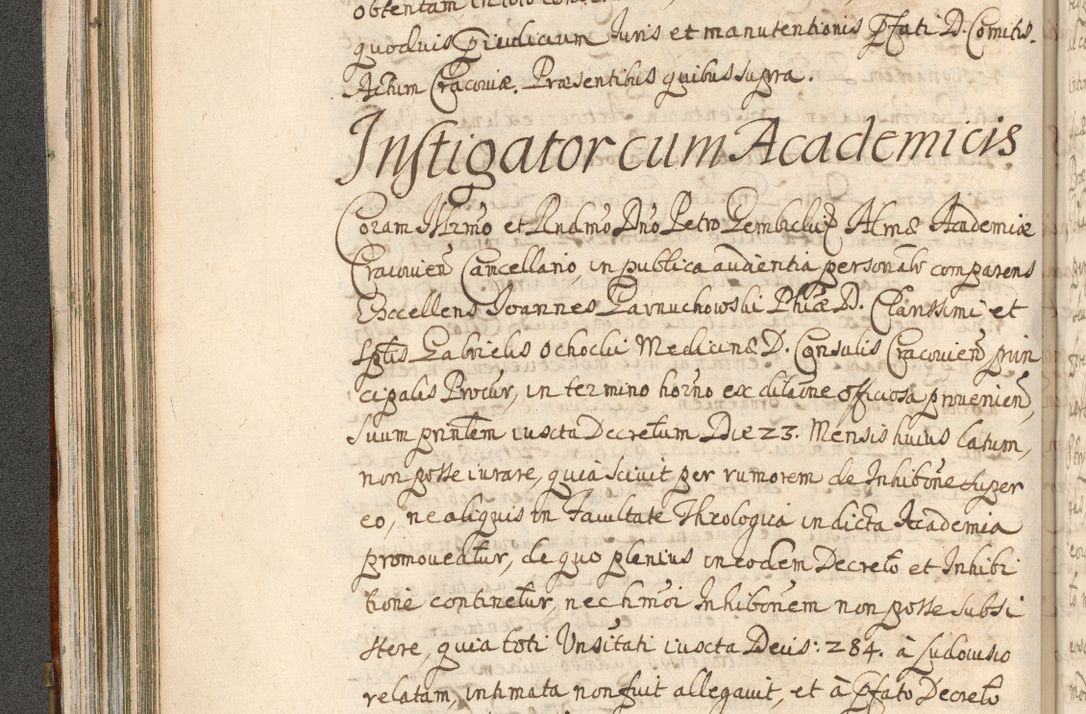 obtentam, in toto
quoduis Pjudicium Juris et manutentionis Pfati D. Comitis.
Actum Cracoviæ. Præsentibus quibus supra.
Instigator cum Academicis
Coram Illrmo et Rndmo Dno Petro Gembicki Almæ Academiæ
Cracovien Cancellario, in publica audientia personalr comparens
Excellens Joannes Tarnuchowski Phiæ D. Clarissimi et
Spttis Gabrielis Ochocki Medicinæ D. Consulis Cracovien prin
cipalis Procur, in termino horno ex dilaone officiosa provenien,
suum prntem iuxta Decretum Die 23. Mensis huius latum,
non posse iurare, quia scivit per rumorem de Inhibone super
eo, ne aliquis in Facultate Theologica in dicta Academia
promoveatur, de quo plenius in eodem Decreto et Inhibi
tione continetur, nec hmoi Inhibonem non posse subsi
stere, quia toti Unsitati iuxta Decis: 284. à Ludovisio
relatam, intimata non fuit allegavit, et à pfato Decreto